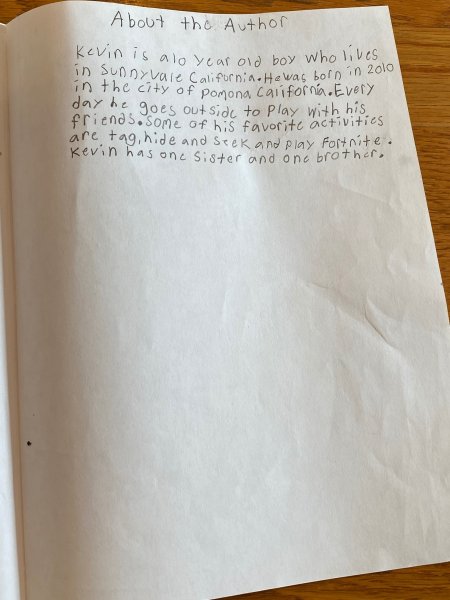 About the Author
Kevin is a 10 year old boy who lives
in Sunnyvale California. He was born in 2010
in the city of pomona California. Every
day he goes outside to Play with his
friends. some of his favorite activities
are tag, hide and seek and play fortnite.
Kevin has one sister and one brother.